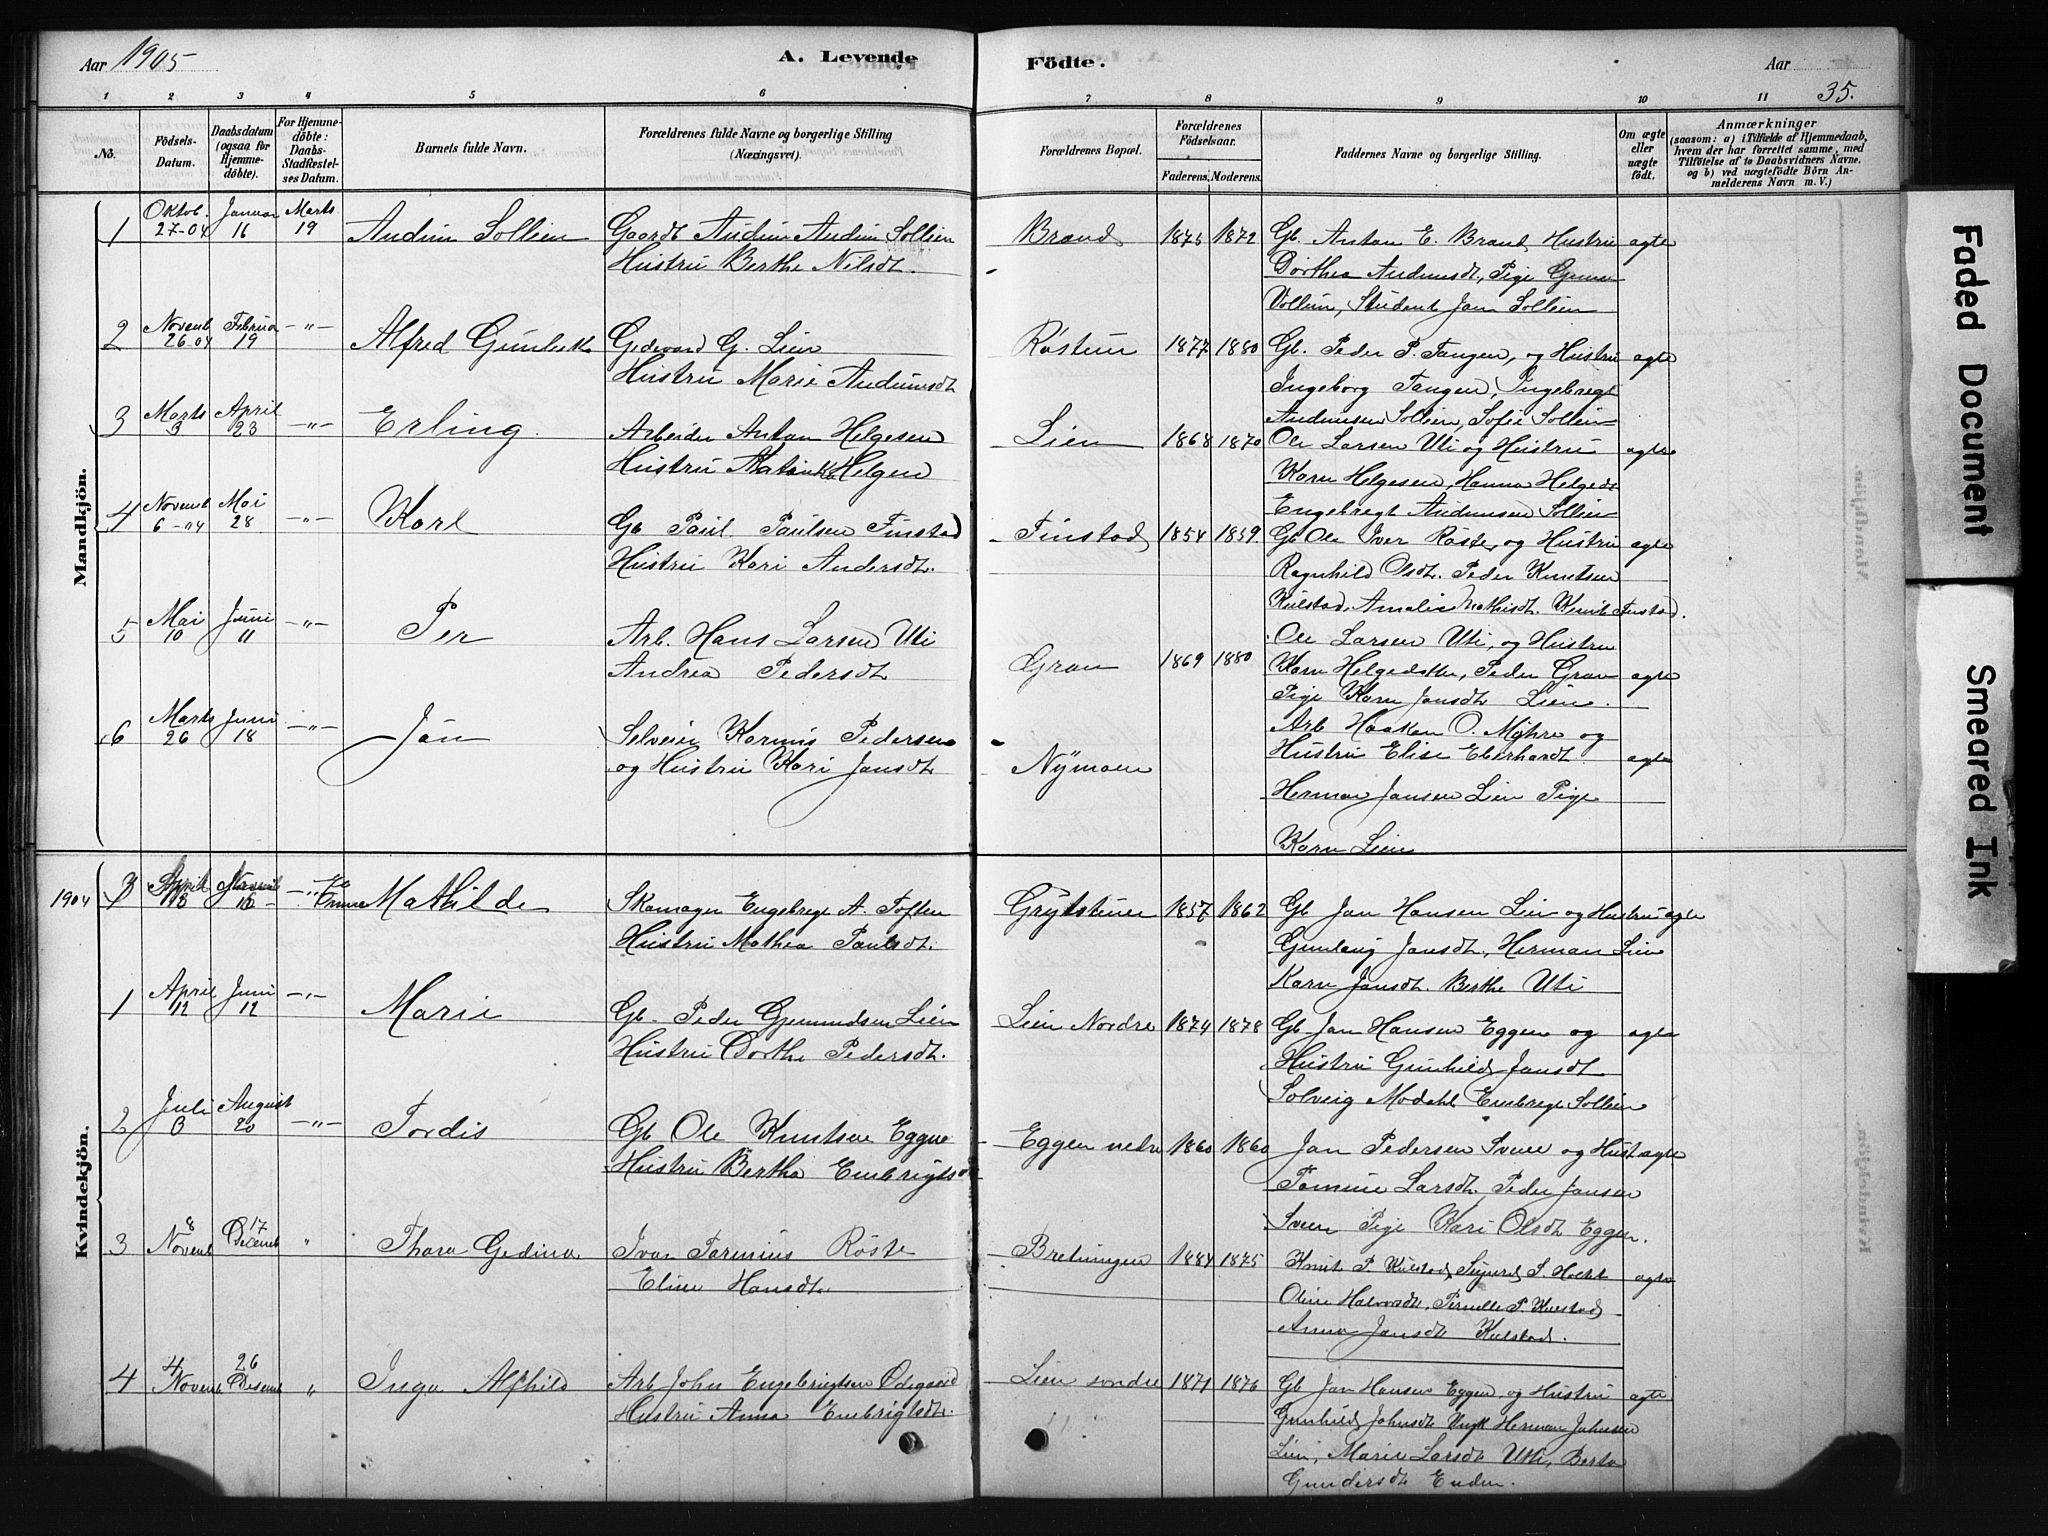 Aar 1905
A. Levende
Födte.
Aar
35.
1 2 3 4 5 6 7 8 9 10 11
No.
Födsels-Datum.
Daabsdatum (ogsaa for Hjemme-döbte).
For Hjemme-döbte: Daabs-Stadfæstel-ses Datum.
Barnets fulde Navn.
Forældrenes fulde Navne og borgerlige Stilling (Næringsvei).
Forældrenes Bopæl.
Forældrenes Födselsaar.
Faderens. Moderens.
Faddernes Navne og borgerlige Stilling.
Om ægte eller uægte födt.
Anmærkninger
(saasom: a) i Tilfælde af Hjemmedaab, hvem der har forrettet samme, med Tilföielse af to Daabsvidners Navne, og b) ved uægtefödte Börn Anmelderens Navn m. V.)
Mandkjön.
1 Oktob. 27-04 Januar 16 Marts 19 Audun Sollien Gaardb Audun Audun Sollien Brand 1875 1872 Gb. Anton E. Brand Hustru agte
Hustru Berthe Nilsdt. Dorthea Audunsdt, Pige
Student Jan Sollien
2 Novemb 26 04 Februa 19 -"- Alfred Gedevard G. Lien Rösteun 1877 1880 Gb. Peder P. Tangen, og Hustru agte
Hustru Marie Audunsdt Ingeborg Tangen, Ingebregt
Audunsen Sollien, Sofie Sollien
3 Marts 3 April 23 -"- Erling Arbeider Anton Helgesen Lien 1868 1870 Ole Larsen Uti og Hustru agte
Hustru Helgen Karn Helgesen, Hanna Helgedt
Engebregt Audunsen Sollien
4 Novemb 6-04 Mai 28 -"- Karl Gb Paul Paulsen Finstad Finstad 1854 1859 Gb Ole Iver Röste, og Hustru agte
Hustru Kari Andersdt. Ragnhild Olsdt. Peder Knutsen
Kulstad, Amalie Mathisdt. Knut Finstad.
5 Mai 10 Juni 11 -"- Per Arb. Hans Larsen Uti Gran 1869 1880 Ole Larsen Uti, og Hustru
Andrea Pedersdt Karn Helgedatter, Peder Gran agte
Pige Karn Jansdt Lien.
6 Marts 26 Juni 18 -"- Jan Selveier Karinus Pedersen Nÿmoen Arb Haaken O. Myhre og
og Hustru Kari Jansdt Hustru Elise Eberhardt. agte
Herman Jansen Lien Pige
Karn Lien
Kvindekjön.
1904 Mathilde Skomager Engebregt A. Toften Grÿtsteuen 1857 1862 Gb Jan Hansen Lien og Hustru agte
Hustru Mathea Paulsdt. Gunlaug Jansdt, Herman Lien
Karn Jansdt. Berthe Uti
1 April 12 Juni 12 -"- Marie Gb. Peder Gjermundsen Lien Lien Nordre 1874 1878 Gb Jan Hansen Eggen og agte
Hustru Dorthe Pedersdt. Hustru Gunhild Jansdt
Solveig Modahl Embregt Sollien
2 Juli 3 August 20 -"- Tordis Gb Ole Knutsen Eggen Eggen nedre 1860 1860 Jan Pedersen Sveen og Hust agte
Hustru Bertha Embrigtsd Tomine Larsdt, Peder Jansen
Sveen Pige Kari Olsdt Eggen.
3 8 Novemb 17 Decemb " Thora Gedina Ivar Torenius Röste Bretningen 1884 1875 Knut P. Kulstad, Sigurd S. Holt agte
Eline Hansdtr Oline Halvorsdt, Pernille P. Kulstad
Anna Jansdt Kulstad.
4 4 Novemb 26 Desemb " Inga Alfhild Arb. John Engebrigtsen Ödegaard Lien söndre 1871 1876 Gb Jan Hansen Eggen og Hustru agte
Hustru Anna Embrigtsdt. Gunhild Johnsdt Ungk Herman Johnsen
Lien, Marie Larsdt Uti, Berta
Gundersdt Enden.
Faded Document
Smeared Ink